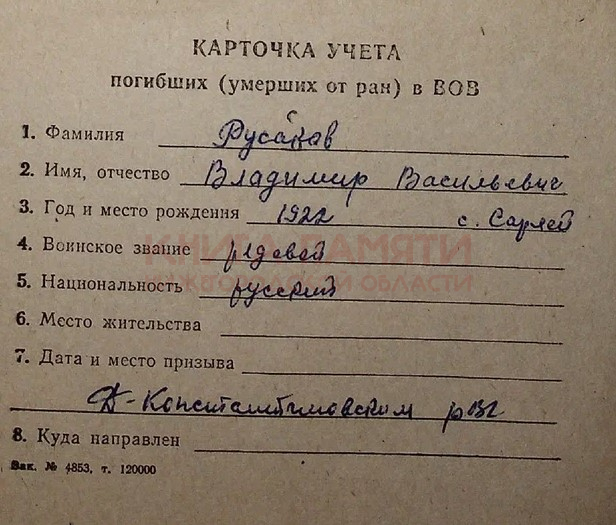 КАРТОЧКА УЧЕТА
погибших (умерших от ран) в ВОВ
1. Фамилия Русаков
2. Имя, отчество Владимир Васильевич
3. Год и место рождения 1922 с. Сарлей
4. Воинское звание рядовой
КНИГА ПАМЯТИ
НИЖЕГОРОДСКОЙ ОБЛАСТИ
5. Национальность русский
6. Место жительства
7. Дата и место призыва
Д-Константиновским рвк
8. Куда направлен
Зак. № 4853, т. 120000